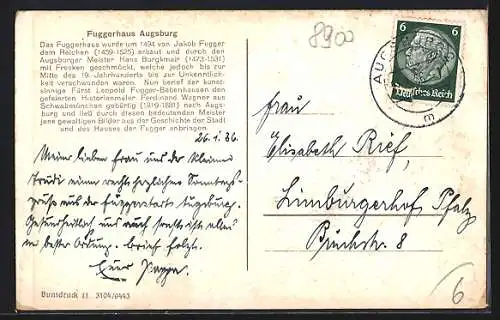 Fuggerhaus Augsburg
Das Fuggerhaus wurde um 1494 von Jakob Fugger
dem Reichen (1459-1525) erbaut und durch den
Augsburger Meister Hans Burgkmair (1473-1531)
mit Fresken geschmückt, welche jedoch bis zur
Mitte des 19. Jahrhunderts bis zur Unkenntlich-
keit verschwanden waren. Nun berief der kunst-
sinnige Fürst Leopold Fugger-Babenhausen den
gefeierten Historienmaler Ferdinand Wagner aus
Schwabmünchen gebürtig (1819-1881) nach Augs-
burg und ließ durch diesen bedeutenden Meister
jene gewaltigen Bilder aus der Geschichte der Stadt
und des Hauses der Fugger anbringen.
26.1.36.
Meiner lieben Frau und der kleinen
Trudi einen recht herzlichen Sonntags-
grüße aus der Fuggerstadt Augsburg.
Gesundheitlich und auch sonst ist alles
in bester Ordnung. Brief folgt.
Euer Pappa.
Bunsdruck 11 3104/6443
8900
6 6
Deutsches Reich
AUGSBURG
Frau
Elisabeth Rief,
Limburgerhof Pfalz
8
6